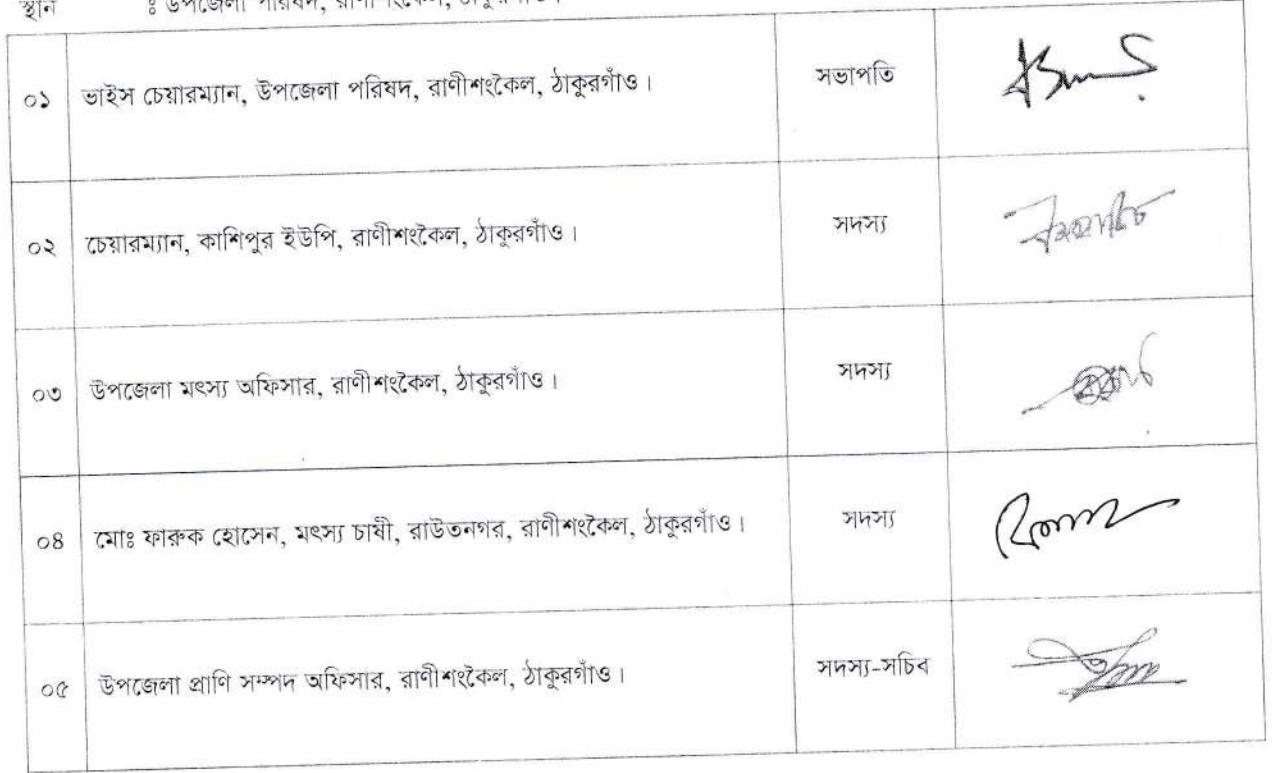 স্থান ঃ উপজেলা পরিষদ, রাণীশংকৈল, ঠাকুরগাঁও।
০১ ভাইস চেয়ারম্যান, উপজেলা পরিষদ, রাণীশংকৈল, ঠাকুরগাঁও। সভাপতি
০২ চেয়ারম্যান, কাশিপুর ইউপি, রাণীশংকৈল, ঠাকুরগাঁও। সদস্য
০৩ উপজেলা মৎস্য অফিসার, রাণীশংকৈল, ঠাকুরগাঁও। সদস্য
০৪ মোঃ ফারুক হোসেন, মৎস্য চাষী, রাউতনগর, রাণীশংকৈল, ঠাকুরগাঁও। সদস্য
০৫ উপজেলা প্রাণি সম্পদ অফিসার, রাণীশংকৈল, ঠাকুরগাঁও। সদস্য-সচিব